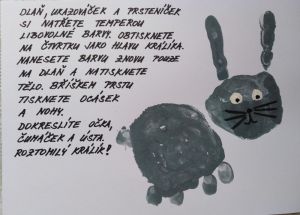 DLAŇ, UKAZOVÁČEK A PRSTENÍČEK
SI NATŘETE TEMPEROU
LIBOVOLNÉ BARVY. OBTISKNETE
NA ČTVRTKU JAKO HLAVU KRÁLÍKA.
NANESETE BARVU ZNOVU POUZE
NA DLAŇ A NATISKNETE
TĚLO. BŘÍŠKEM PRSTU
TISKNETE OCÁSEK
A NOHY.
DOKRESLÍTE OČKA,
ČUMÁČEK A ÚSTA.
ROZTOMILÝ KRÁLÍK!